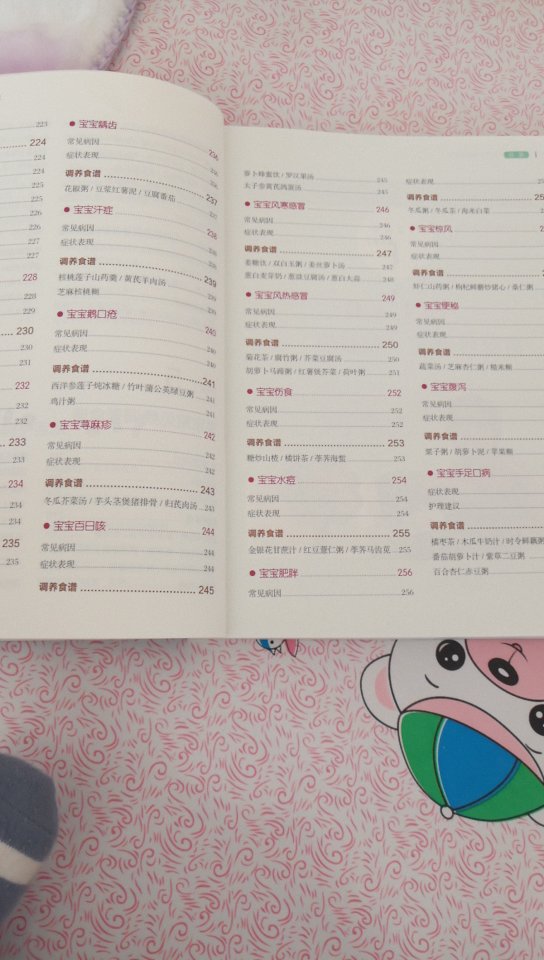 223
224
224
224
225
225
226
226
227
227
228
228
229
230
230
231
232
232
232
233
233
234
234
234
235
235
● 宝宝龋齿
常见病因 236
症状表现
调养食谱 237
花椒粥 / 豆浆红薯泥 / 豆腐番茄 237
● 宝宝汗症 238
常见病因
症状表现
调养食谱 239
核桃莲子山药羹 / 黄芪羊肉汤 239
芝麻核桃糊 239
● 宝宝鹅口疮 240
常见病因 240
症状表现 240
调养食谱 241
西洋参莲子炖冰糖 / 竹叶蒲公英绿豆粥 241
鸡汁粥 241
● 宝宝荨麻疹 242
常见病因 242
症状表现 242
调养食谱 243
冬瓜芥菜汤 / 芋头茎煲猪排骨 / 归芪肉汤 243
● 宝宝百日咳 244
常见病因 244
症状表现 244
调养食谱 245
萝卜蜂蜜饮 / 罗汉果汤 245
太子参黄芪鸽蛋汤 245
● 宝宝风寒感冒 246
常见病因 246
症状表现 246
调养食谱 247
姜糖饮 / 双白玉粥 / 姜丝萝卜汤 247
葱白麦芽奶 / 葱豉豆腐汤 / 葱白大蒜 248
● 宝宝风热感冒 249
常见病因 249
症状表现 249
调养食谱 250
菊花茶 / 腐竹粥 / 芥菜豆腐汤 250
胡萝卜马蹄粥 / 红薯铁芥菜 / 荷叶粥 251
● 宝宝伤食 252
常见病因 252
症状表现 252
调养食谱 253
糖炒山楂 / 橘饼茶 / 荸荠海蜇 253
● 宝宝水痘 254
常见病因 254
症状表现 254
调养食谱 255
金银花甘蔗汁 / 红豆薏仁粥 / 荸荠马齿苋 255
● 宝宝肥胖 256
常见病因 256
目录
症状表现
调养食谱
冬瓜粥 / 冬瓜茶 / 海米白菜
● 宝宝惊风
常见病因
症状表现
调养食谱
● 宝宝便秘
常见病因
症状表现
调养食谱
蔬菜汤 / 芝麻杏仁粥 / 糙米糊
● 宝宝腹泻
常见病因
症状表现
调养食谱
栗子粥 / 胡萝卜泥 / 苹果糊
● 宝宝手足口病
症状表现
护理建议
调养食谱
橘枣茶 / 木瓜牛奶汁 / 时令鲜藕粥
番茄胡萝卜汁 / 紫草二豆粥
百合杏仁赤豆粥